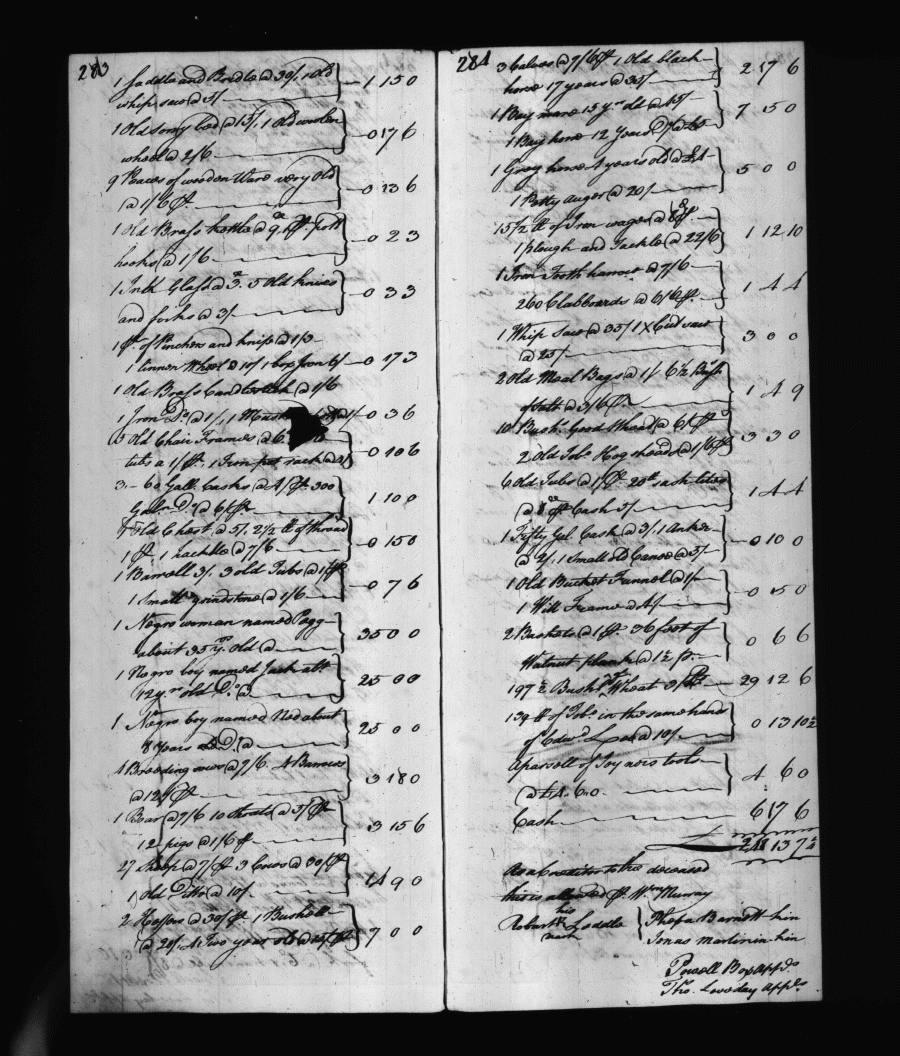 283
1 Saddle and Bridle @ 30/, 1 old
whip saw @ 5/ 1 15 0
1 Old bed @ 15/, 1 Old woolen
wheel @ 2/6 0 17 6
9 Peaces of wooden Ware very old
@ 1/6 ℔ 0 13 6
1 Old Brass kettle @ 9d pott
hooks @ 1/6 0 2 3
1 Ink Glass @ 3d. 5 Old knives
and forks @ 3/ 0 3 3
1 pr. of Pinchers and knife @ 1/3
1 linnen Wheel @ 10/ 1 box Iron 6/ 0 17 3
1 Old Brass Candlestick @ 1/6
1 Iron Do. @ 1/, 1 @ 1/ 0 3 6
5 Old Chair Frames @
tubs a 1/ 1 Iron pot rack @ 0 10 6
3 - 60 Gall. Casks @ 4/ 300
Galn. Do. @ 6/ 1 10 0
Old Chest @ 5/, 2 1/2 ℔ of thread
1 hackle @ 7/6 0 15 0
1 Barrell 3/. 3 old Tubs @ 1/
1 Small grindstone @ 1/6 0 7 6
1 Negro woman named Pegg
about 35 yrs. Old @ 35 0 0
1 Negro boy named Jack abt.
12 yrs old Do. @ 25 0 0
1 Negro boy named Ned about
8 Years Do. @ 25 0 0
4 Breeding sows @ 9/6. 4 Barrows
@ 12/ 3 18 0
1 Boar @ 7/6 10 Shoats @ 5/
12 pigs @ 1/6 3 15 6
27 Sheep @ 7/ 3 Cows @ 30/
1 old Ditto @ 10/ 14 9 0
2 Heffers @ 30/ 1 Bushell
@ 20/. 4 Two year old @ 7 0 0
284
3 Calves @ 7/6 1 Old black
horse 17 years @ 35/ 2 17 6
1 Bay mare 15 yrs old @ 45/
1 Bay horse 12 Years Do @ £5 7 5 0
1 Grey horse years old @ £4
1 Petty auger @ 20/ 5 0 0
15 1/2 ℔ of Iron wages @ 8d
1 plough and Tackle @ 22/6 1 12 10
1 Iron Tooth harrow @ 7/6
260 Clabboards @ 6/6 1 4 4
1 Whip Saw @ 35/ 1 X Cut saw
@ 25/ 3 0 0
2 Old Meal Bags @ 1/ 6 1/2 Bush
of salt @ 3/6 1 4 9
10 Bushs. Good Wheat @ 6/
2 Old Tobo. Hogsheads @ 1/6 3 3 0
6 Old Tubs @ 1/ 20 sash lites
@ 8d Cash 3/ 1 4 4
1 Fifty Gal Cask @ 3/, 1 Anker
@ 2/, 1 Small old Canoe @ 5/ 0 10 0
1 Old Bucket Funnel @ 1/
1 Mill Frame @ 4/ 0 5 0
2 Baskets @ 1/ 36 foot of
Walnut plank @ 1 1/2 0 6 6
197 1/2 Bush. Wheat 3/ 29 12 6
139 ℔ of Tobo. in the same hands
of Edwd. @ 10/ 0 13 10 1/2
A parsell of Joyners tools
@ £4. 6. 0 4 6 0
Cash 6 17 6
£ 218 13 7 1/2
As a Creditor to the deceased
this is attested ℔. Wm Murray
his
Robert Loddle
mark
Barnett kin
Jonas Martinin kin
Powell Box Appds
Tho. Loveday Appds.